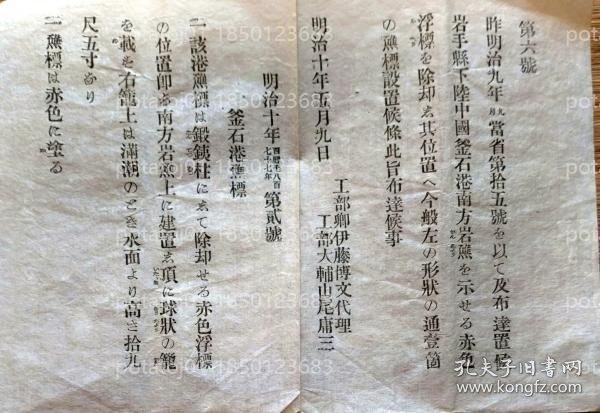 第六號
昨明治九年九月當省第拾五號を以て及布達置候
岩手縣下陸中國釜石港南方岩礁を示せる赤色
浮標を除却志其位置へ今般左の形狀の通壹箇
の礁標設置候條此旨布達候事
工部卿伊藤博文代理
工部大輔山尾庸三
明治十年五月九日
明治十年西曆千八百七十七年第貳號
釜石港礁標
一 該港礁標は鍛銕柱にゑて除却せる赤色浮標
の位置卽ち南方岩礁上に建置志頂に球狀の籠
を載を右籠上は滿潮のとき水面より高さ拾九
尺五寸なり
一 礁標は赤色に塗る
孔夫子旧书网
www.kongfz.com